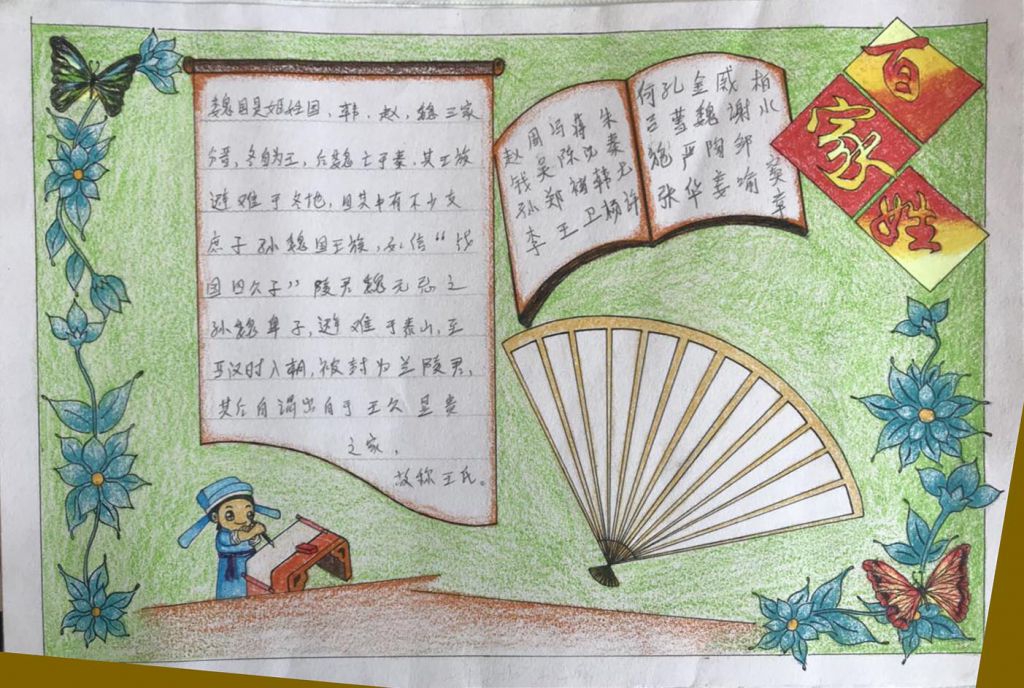 百
家
姓
魏国是姬姓国，韩、赵，魏三家
分晋，各自为王，后魏亡于秦，其王族
避难于各地，且其中有不少支
庶子孙魏国王族，如信“战
国四公子”陵君魏无忌之
孙魏卑子，避难于泰山，至
西汉时入朝，被封为兰陵君，
其后自谓出自于王公显贵
之家，
故称王氏。
赵钱孙李
周吴郑王
冯陈褚卫
蒋沈韩杨
朱秦尤许
何吕施张
孔曹严华
金魏陶姜
戚谢邹喻
柏水窦章